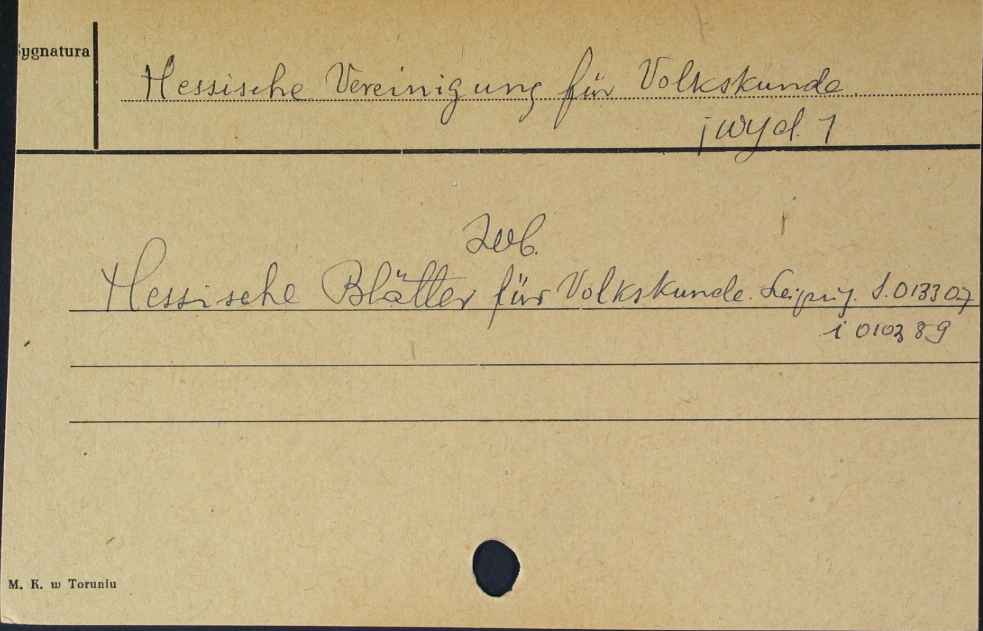 Sygnatura
Hessische Vereinigung für Volkskunde.
j wyd. 1
zob.
Hessische Blätter für Volkskunde. Leipzig. S. 013307
i 010389
M. K. w Toruniu